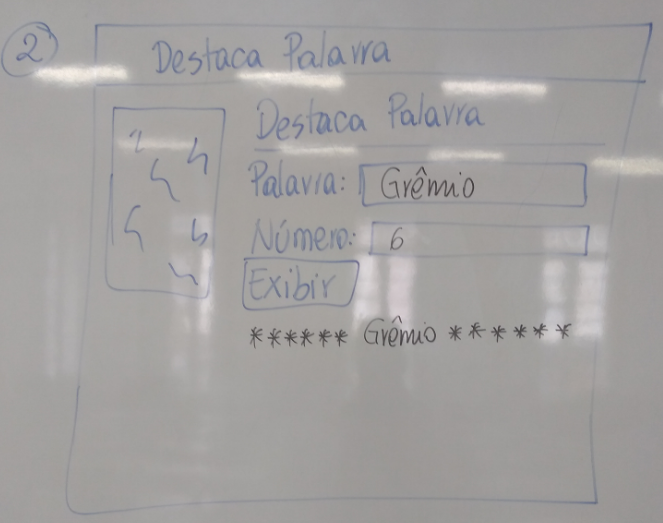 2
Destaca Palavra
Destaca Palavra
Palavra: Grêmio
Número: 6
Exibir
****** Grêmio ******